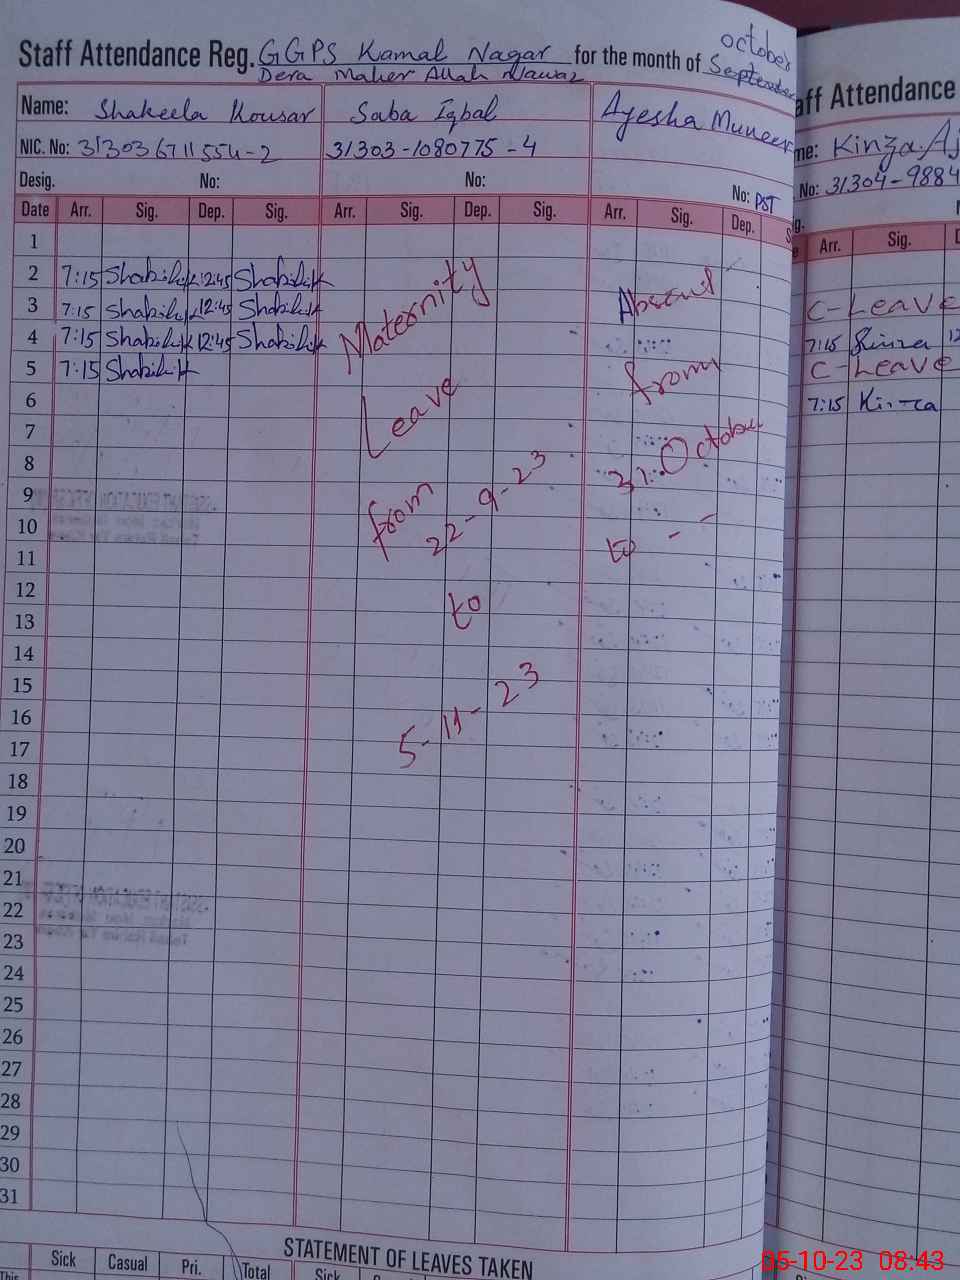 october
Staff Attendance Reg. GGPS Kamal Nagar for the month of September
Dera Maher Allah Nawaz
Name: Shakeela Kousar Saba Iqbal Ayesha Muneer
NIC. No: 31303-1080775-4
Desig. No: No: No: PST
Date Arr. Sig. Dep. Sig. Arr. Sig. Dep. Sig. Arr. Sig. Dep.
1
2 7:15 12:45
3 7:15 12:45
4 7:15 12:45
5 7:15
6
7
8
9
10
11
12
13
14
15
16
17
18
19
20
21
22
23
24
25
26
27
28
29
30
31
Maternity
Leave
from
22-9-23
to
5-11-23
Absent
from
October
to - -
STATEMENT OF LEAVES TAKEN
This Sick Casual Pri. Total Sick
aff Attendance
me: Kinza
No: 31304-9884
Arr. Sig.
C-Leave
7:15
C-Leave
7:15 Kinza
05-10-23 08:43